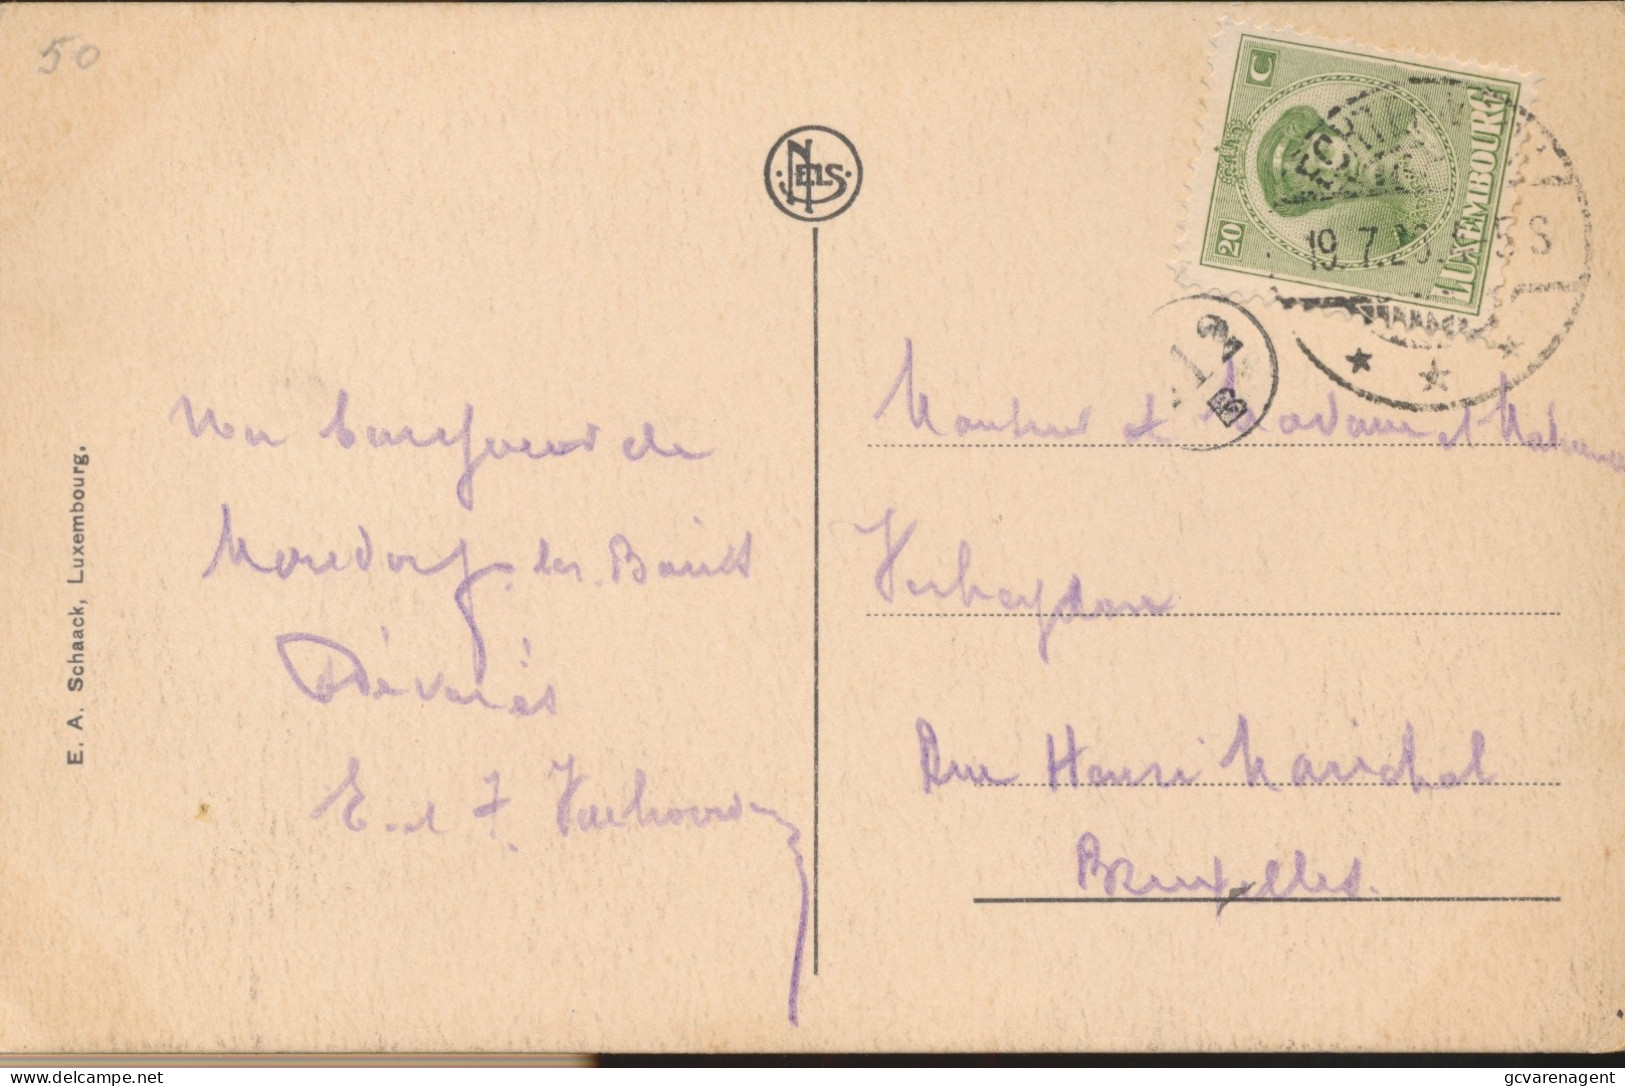 50
NELS
20 C
LUXEMBOURG
19.7.2
5S
E. A. Schaack, Luxembourg.
Un bonjour de
Mondorf-les-Bains
Dévoués
E. et F. Verhoeven
Monsieur et Madame et
Verheyden
Rue Henri Marichal
Bruxelles.
delcampe.net
gcvarenagent